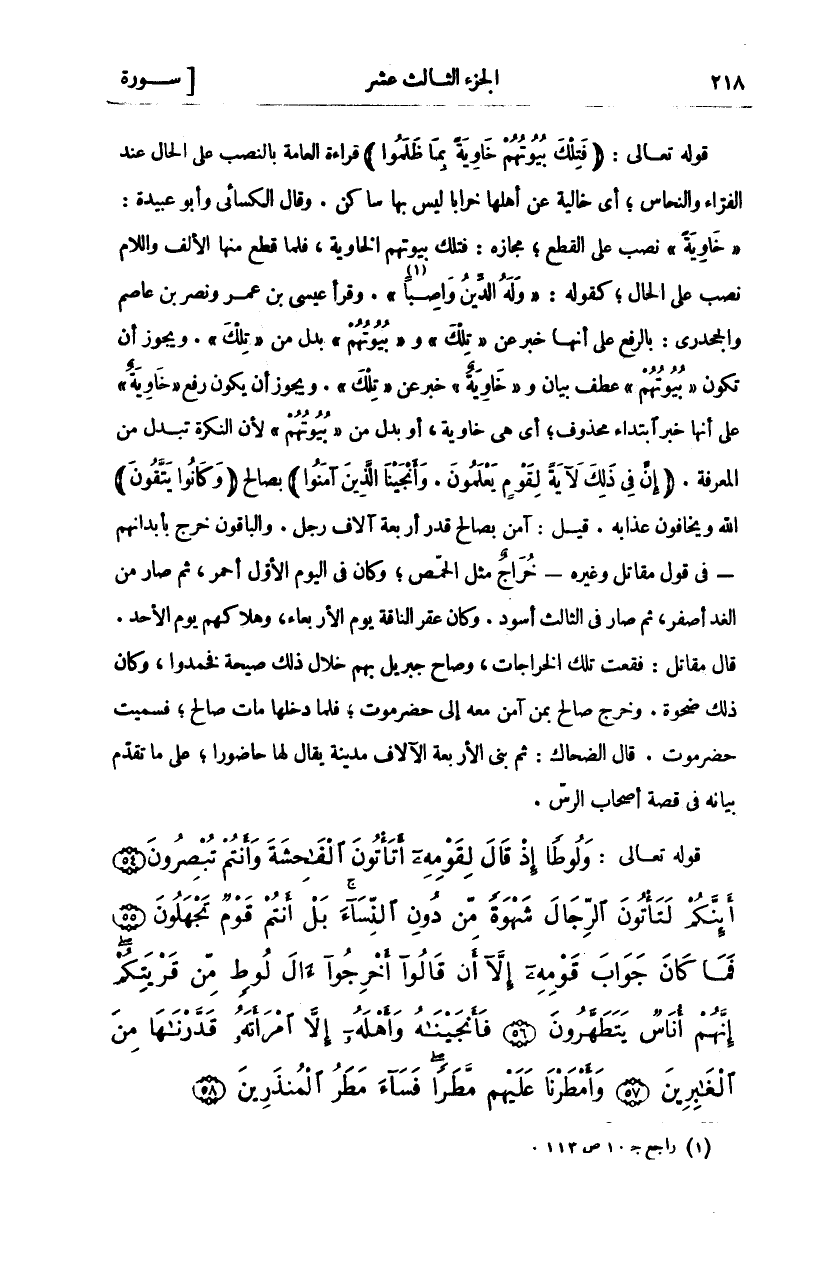 ٢١٨ الجزء الثالث عشر [ ســورة
قوله تعالى : ﴿ فَتِلْكَ بُيُوتُهُمْ خَاوِيَةً بِمَا ظَلَمُوا ﴾ قراءة العامة بالنصب على الحال عند
الفرّاء والنحاس ؛ أى خالية عن أهلها خرابا ليس بها ساكن . وقال الكسائى وأبو عبيدة :
« خَاوِيَةً » نصب على القطع ؛ مجازه : فتلك بيوتهم الخاوية ، فلما قطع منها الألف واللام
نصب على الحال ؛ كقوله : « وَلَهُ الدِّينُ وَاصِبًا (١) » . وقرأ عيسى بن عمر ونصر بن عاصم
والجحدرى : بالرفع على أنها خبر عن « تِلْكَ » و « بُيُوتُهُمْ » بدل من « تِلْكَ » . ويجوز أن
تكون « بُيُوتُهُمْ » عطف بيان و « خَاوِيَةٌ » خبر عن « تِلْكَ » . ويجوز أن يكون رفع «خَاوِيَةٌ»
على أنها خبر ٱبتداء محذوف؛ أى هى خاوية ، أو بدل من « بُيُوتُهُمْ » لأن النكرة تبدل من
المعرفة . ﴿ إِنَّ فِى ذَلِكَ لَآيَةً لِقَوْمٍ يَعْلَمُونَ . وَأَنْجَيْنَا الَّذِينَ آمَنُوا ﴾ بصالح ﴿ وَكَانُوا يَتَّقُونَ ﴾
الله ويخافون عذابه . قيل : آمن بصالح قدر أربعة آلاف رجل . والباقون خرج بأبدانهم
— فى قول مقاتل وغيره — خُرَاجٌ مثل الحمّص ؛ وكان فى اليوم الأوّل أحمر ، ثم صار من
الغد أصفر، ثم صار فى الثالث أسود . وكان عقر الناقة يوم الأربعاء، وهلاكهم يوم الأحد .
قال مقاتل : فقعت تلك الخراجات ، وصاح جبريل بهم خلال ذلك صيحة فخمدوا ، وكان
ذلك ضحوة . وخرج صالح بمن آمن معه إلى حضرموت ؛ فلما دخلها مات صالح ؛ فسميت
حضرموت . قال الضحاك : ثم بنى الأربعة الآلاف مدينة يقال لها حاضورا ؛ على ما تقدّم
بيانه فى قصة أصحاب الرسّ .
قوله تعالى : وَلُوطًا إِذْ قَالَ لِقَوْمِهِۦٓ أَتَأْتُونَ ٱلْفَٰحِشَةَ وَأَنتُمْ تُبْصِرُونَ ٥٤
أَئِنَّكُمْ لَتَأْتُونَ ٱلرِّجَالَ شَهْوَةً مِّن دُونِ ٱلنِّسَآءِ ۚ بَلْ أَنتُمْ قَوْمٌ تَجْهَلُونَ ٥٥
فَمَا كَانَ جَوَابَ قَوْمِهِۦٓ إِلَّآ أَن قَالُوٓا أَخْرِجُوٓا ءَالَ لُوطٍ مِّن قَرْيَتِكُمْ ۖ
إِنَّهُمْ أُنَاسٌ يَتَطَهَّرُونَ ٥٦ فَأَنجَيْنَٰهُ وَأَهْلَهُۥٓ إِلَّا ٱمْرَأَتَهُۥ قَدَّرْنَٰهَا مِنَ
ٱلْغَٰبِرِينَ ٥٧ وَأَمْطَرْنَا عَلَيْهِم مَّطَرًا ۖ فَسَآءَ مَطَرُ ٱلْمُنذَرِينَ ٥٨
(١) راجع جـ ١٠ ص ١١٣ .